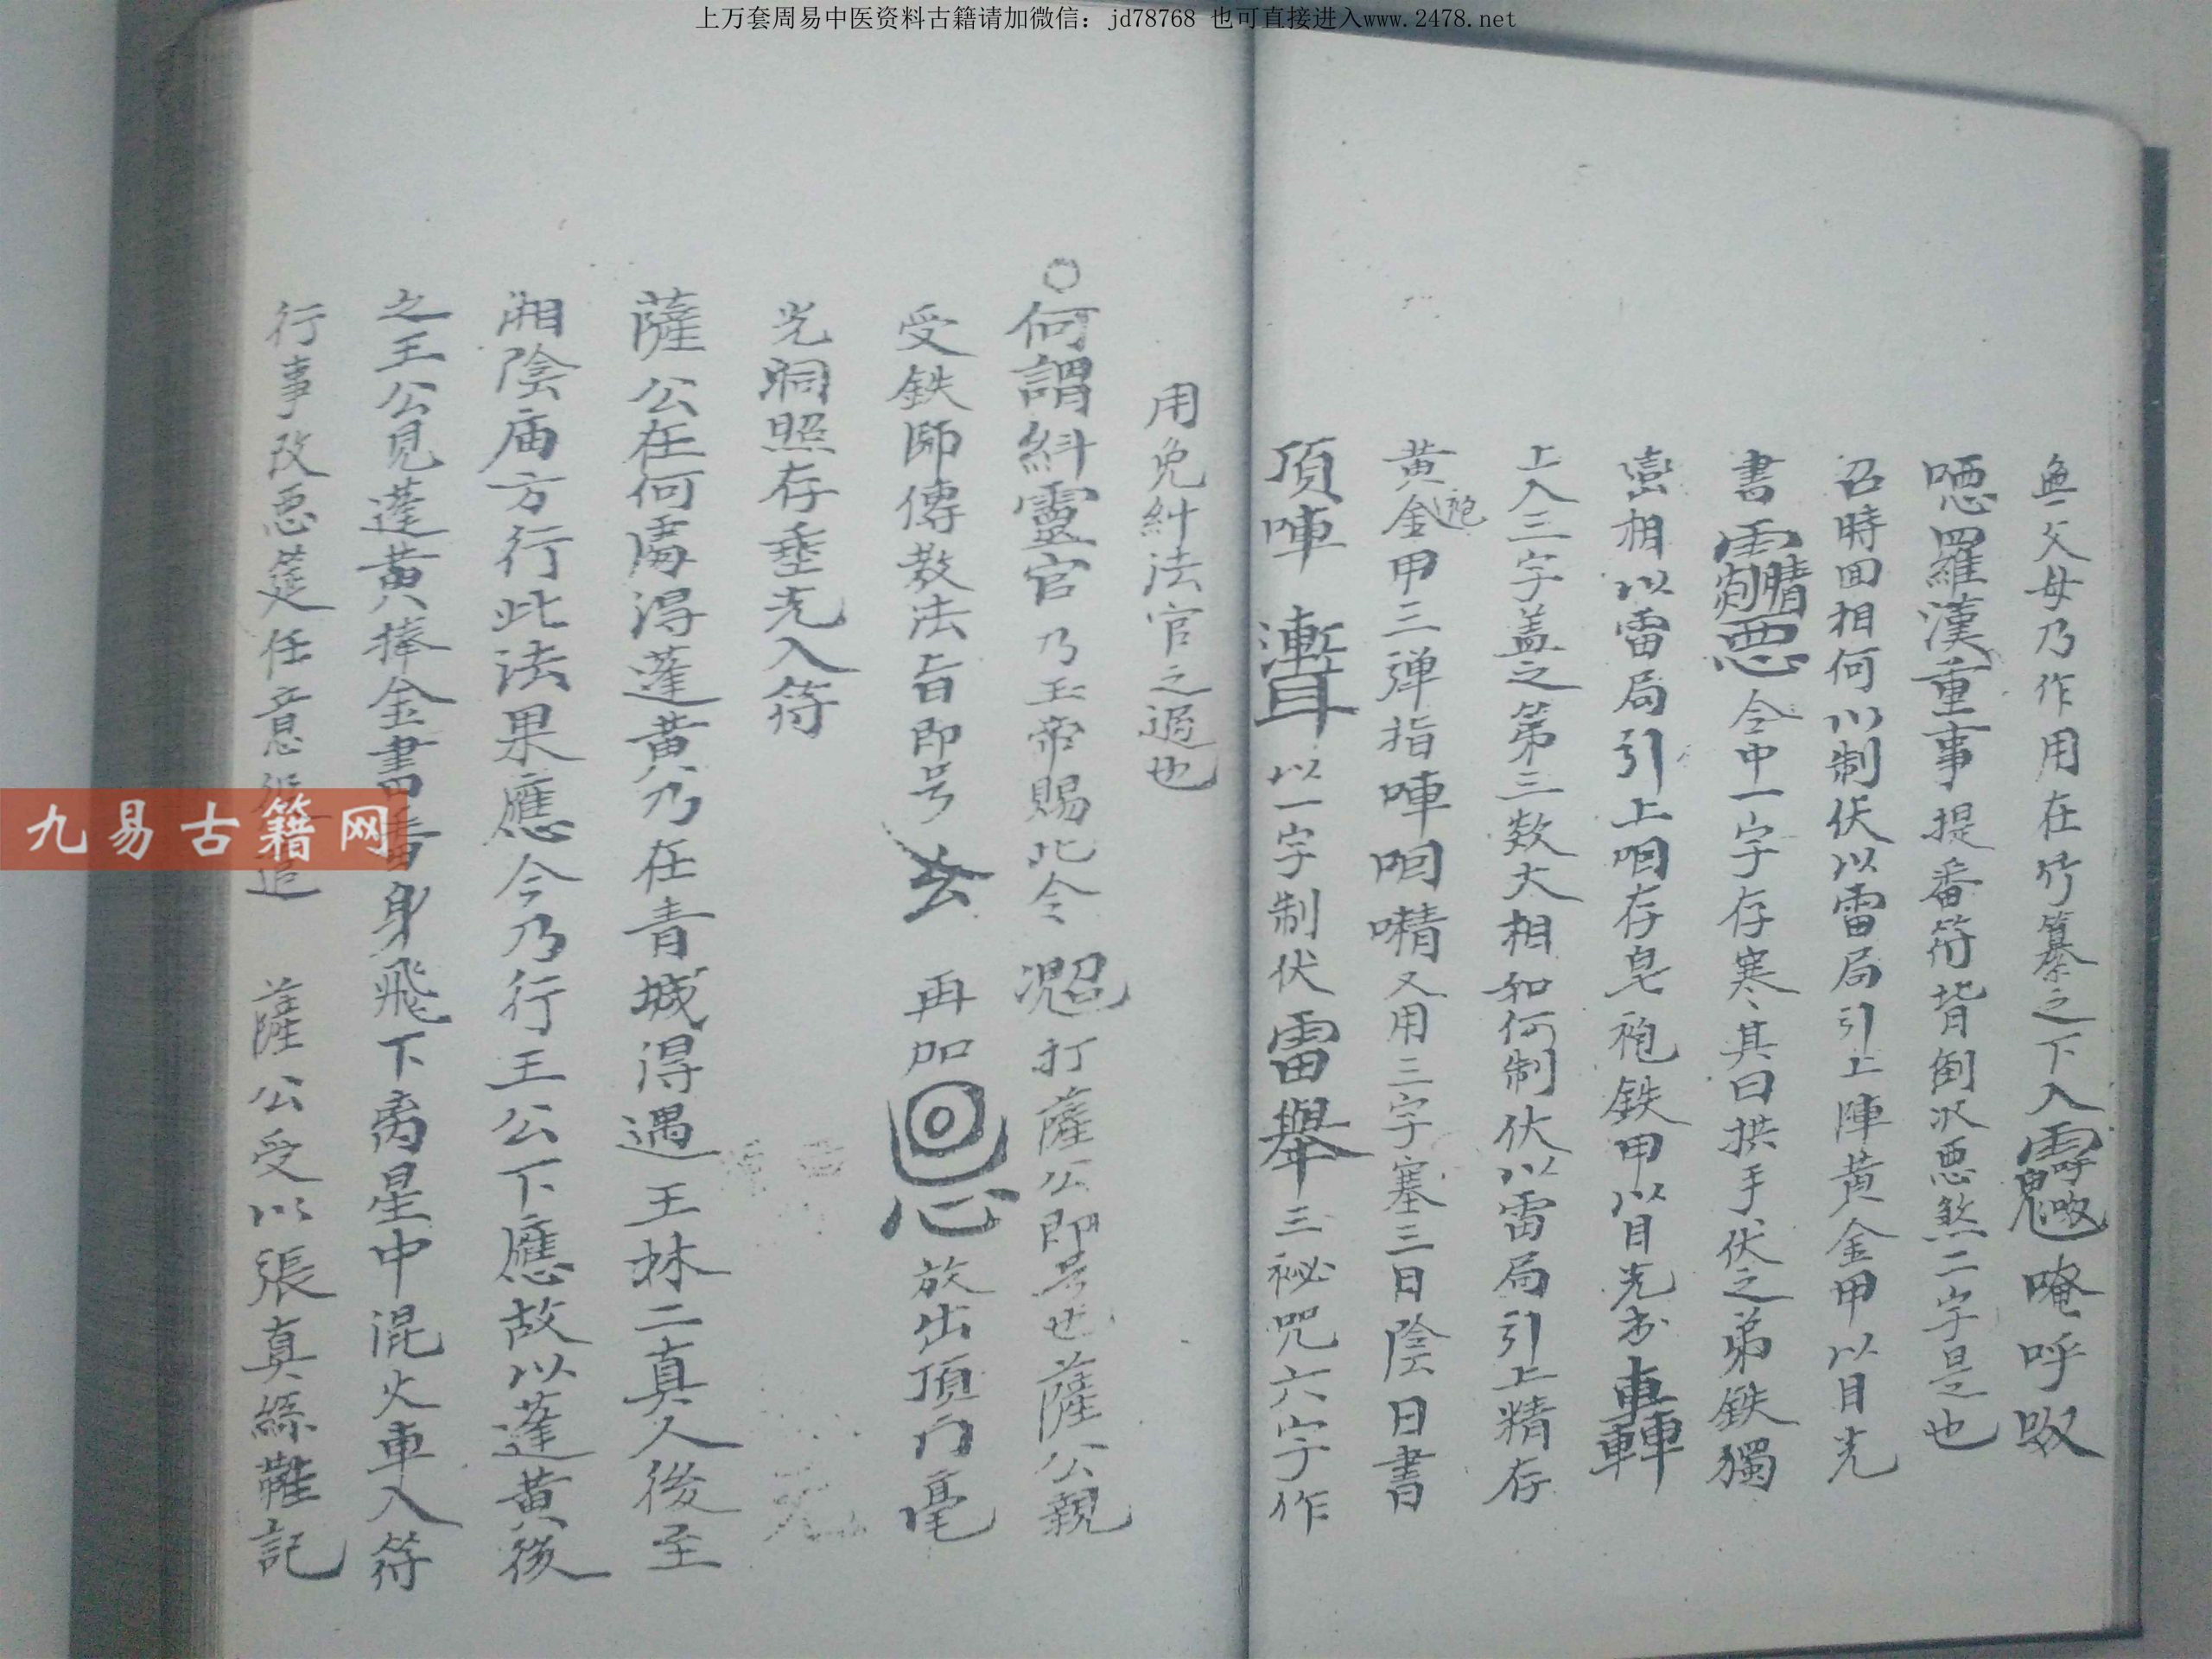 上万套周易中医资料古籍请加微信：jd78768 也可直接进入www.2478.net
無父母乃作用在竹篆之下入唵呼㕹
嗯羅漢重事提番符背倒次悪煞二字是也
召時回相何以制伏以雷局引上陣黃金甲以目光
書令中一字存寒寒其曰拱手伏之弟鉄獨
蛮相以雷局引上咱存皂袍鉄甲以目光书轟
上入三字盖之第三欻大相如何制伏以雷局引上精存
黄金袍甲三弹指啴咽嘖又用三字塞三日陰日書
頂啴以一字制伏雷舉三祕咒六字作
用免糾法官之過也
○何謂糾靈官乃玉帝賜此令打薩公即号也薩公親
受鉄師傳教法旨即号玄再加放出頂门毫
光洞照存垂光入符
薩公在何處得蓬黄乃在青城得遇王林二真人後至
湘陰庙方行此法果應今乃行王公下應故以蓬黄後
之王公見蓬黄捧金書身飛下离星中混火車入符
行事改惡筵任意追 薩公受以張真絲難記
九易古籍网